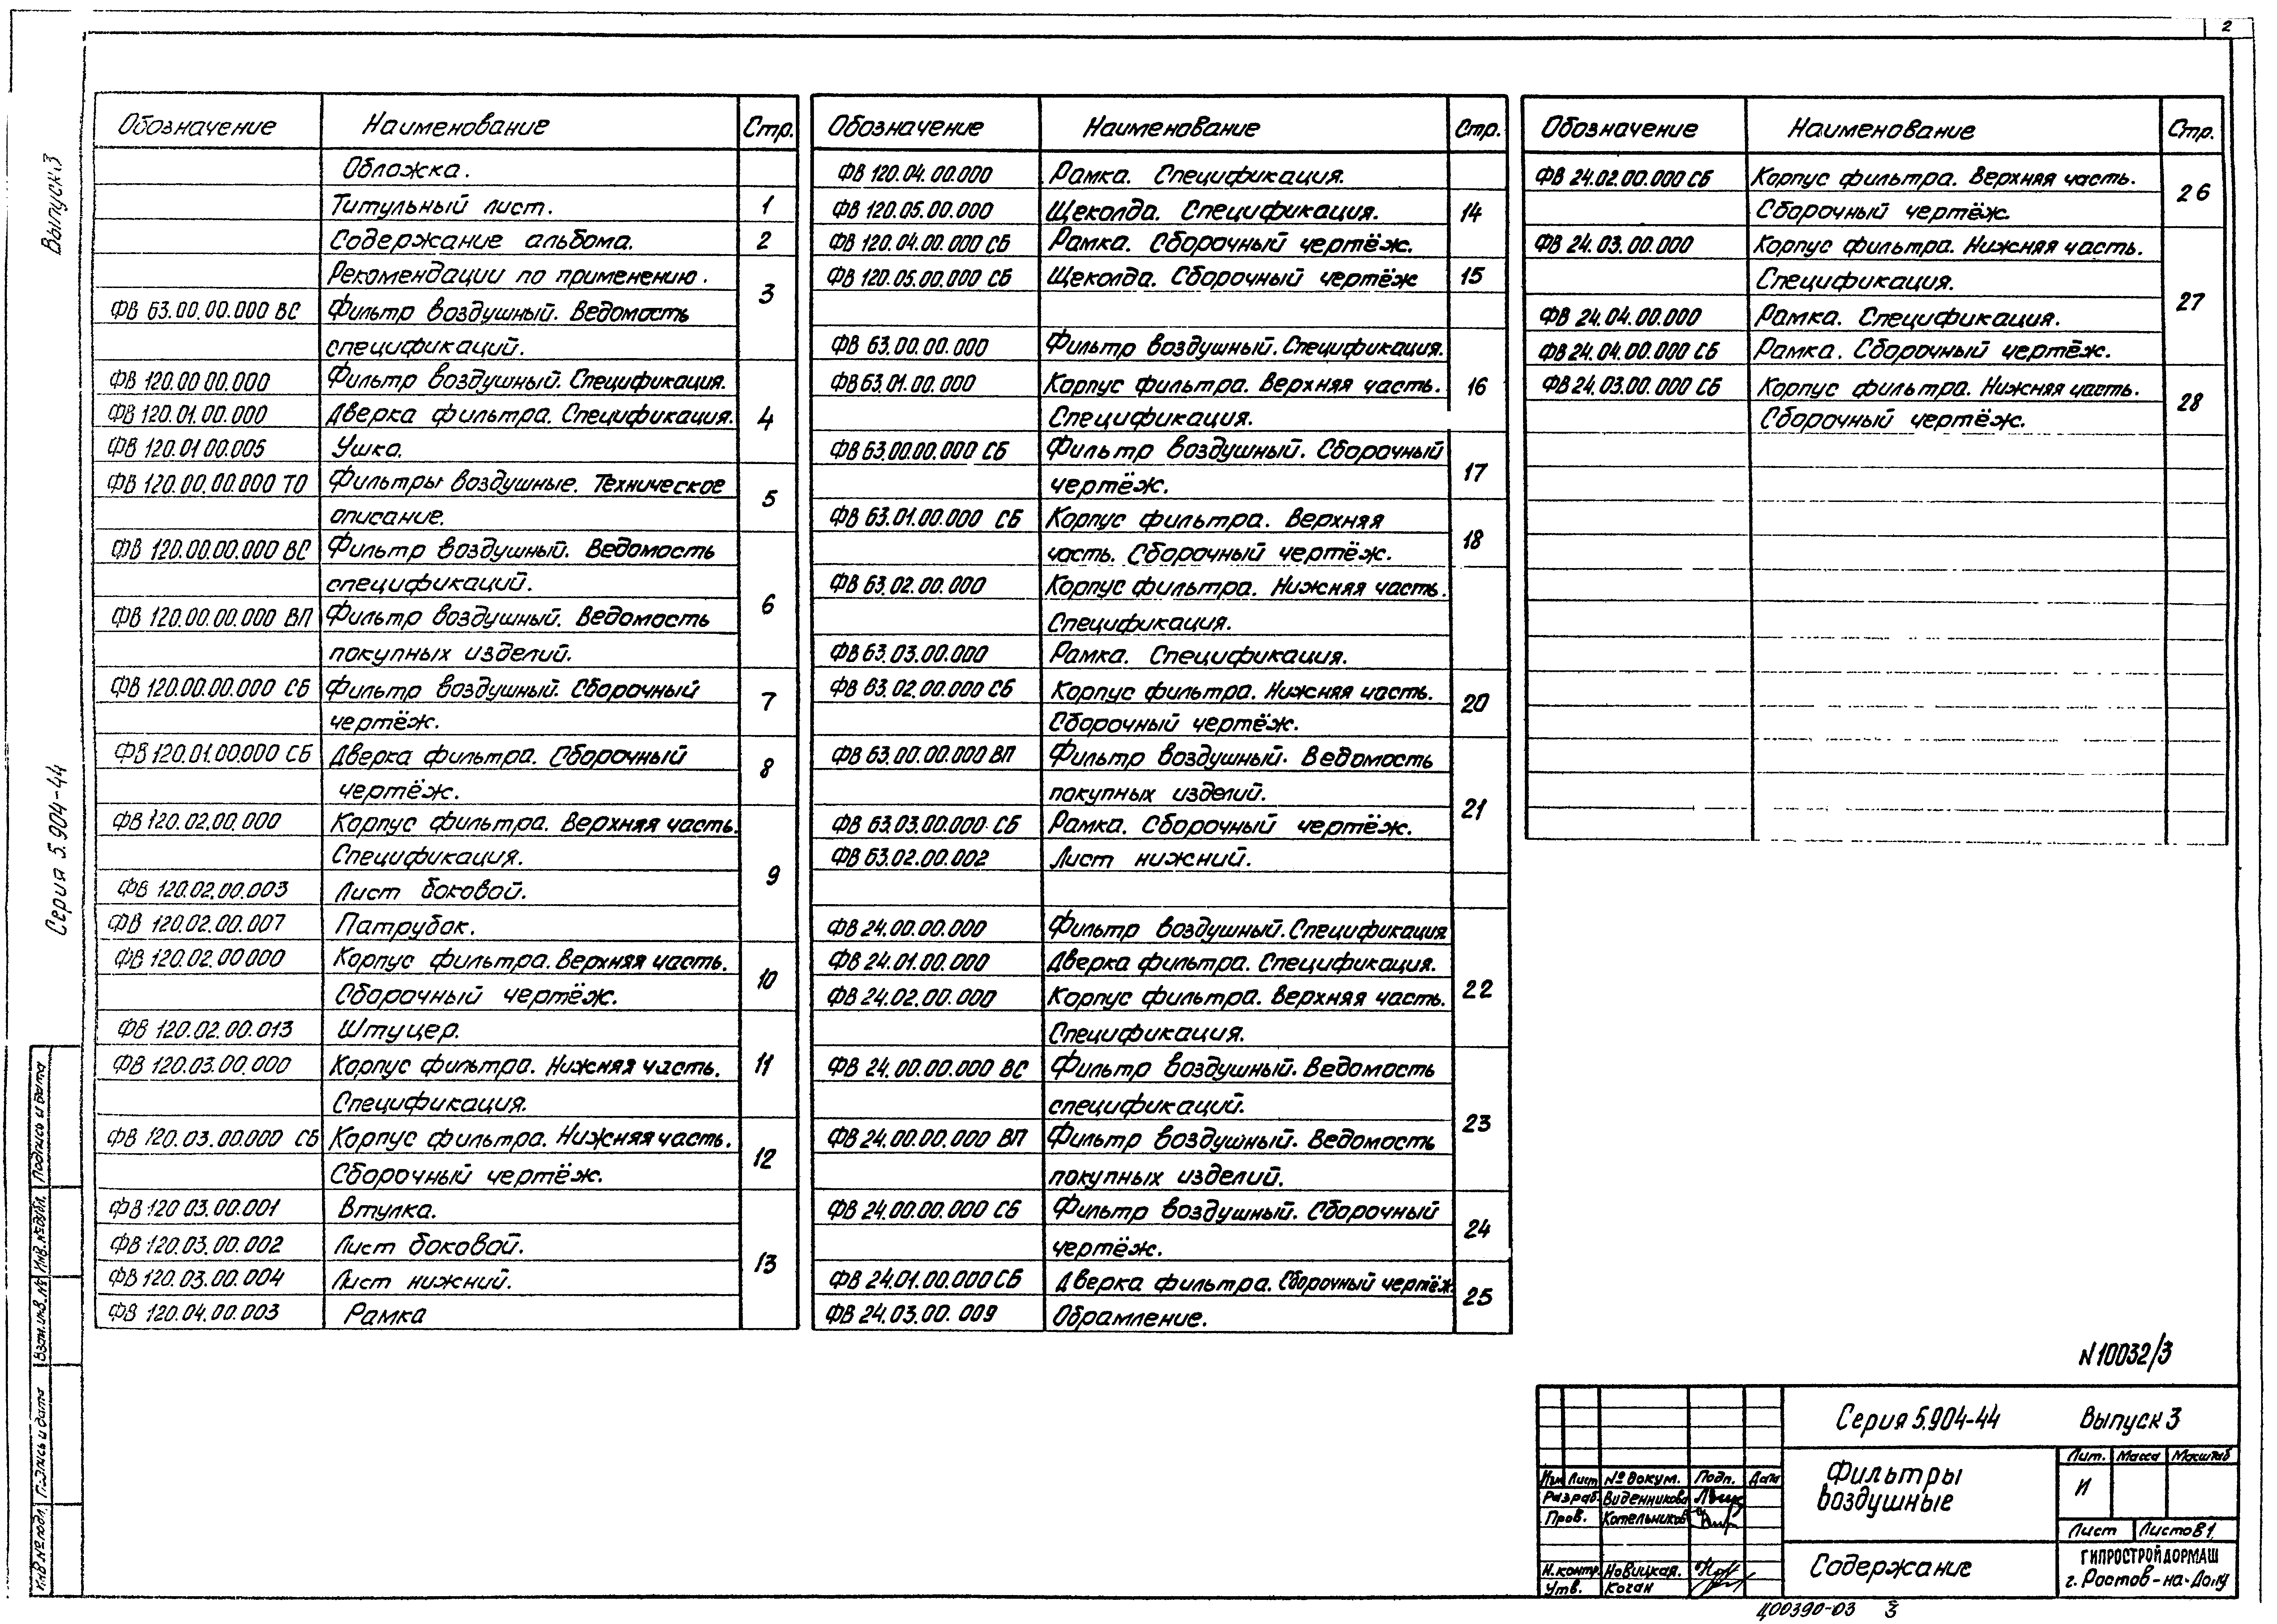 2
Выпуск 3
Серия 5.904-44
Обозначение Наименование Стр.
Обложка.
Титульный лист. 1
Содержание альбома. 2
Рекомендации по применению. 3
ФВ 63.00.00.000 ВС Фильтр воздушный. Ведомость
спецификаций.
ФВ 120.00 00.000 Фильтр воздушный. Спецификация.
ФВ 120.01.00.000 Дверка фильтра. Спецификация. 4
ФВ 120.01 00.005 Ушко.
ФВ 120.00.00.000 ТО Фильтры воздушные. Техническое 5
описание.
ФВ 120.00.00.000 ВС Фильтр воздушный. Ведомость
спецификаций. 6
ФВ 120.00.00.000 ВП Фильтр воздушный. Ведомость
покупных изделий.
ФВ 120.00.00.000 СБ Фильтр воздушный. Сборочный 7
чертёж.
ФВ 120.01.00.000 СБ Дверка фильтра. Сборочный 8
чертёж.
ФВ 120.02.00.000 Корпус фильтра. Верхняя часть.
Спецификация. 9
ФВ 120.02.00.003 Лист боковой.
ФВ 120.02.00.007 Патрубок.
ФВ 120.02.00 000 Корпус фильтра. Верхняя часть. 10
Сборочный чертёж.
ФВ 120.02.00.013 Штуцер.
ФВ 120.03.00.000 Корпус фильтра. Нижняя часть. 11
Спецификация.
ФВ 120.03.00.000 СБ Корпус фильтра. Нижняя часть. 12
Сборочный чертёж.
ФВ 120 03.00.001 Втулка.
ФВ 120.03.00.002 Лист боковой. 13
ФВ 120.03.00.004 Лист нижний.
ФВ 120.04.00.003 Рамка
Обозначение Наименование Стр.
ФВ 120.04.00.000 Рамка. Спецификация.
ФВ 120.05.00.000 Щеколда. Спецификация. 14
ФВ 120.04.00.000 СБ Рамка. Сборочный чертёж.
ФВ 120.05.00.000 СБ Щеколда. Сборочный чертёж 15
ФВ 63.00.00.000 Фильтр воздушный. Спецификация.
ФВ 63.01.00.000 Корпус фильтра. Верхняя часть. 16
Спецификация.
ФВ 63.00.00.000 СБ Фильтр воздушный. Сборочный 17
чертёж.
ФВ 63.01.00.000 СБ Корпус фильтра. Верхняя 18
часть. Сборочный чертёж.
ФВ 63.02.00.000 Корпус фильтра. Нижняя часть.
Спецификация.
ФВ 63.03.00.000 Рамка. Спецификация.
ФВ 63.02.00.000 СБ Корпус фильтра. Нижняя часть. 20
Сборочный чертёж.
ФВ 63.00.00.000 ВП Фильтр воздушный. Ведомость
покупных изделий. 21
ФВ 63.03.00.000 СБ Рамка. Сборочный чертёж.
ФВ 63.02.00.002 Лист нижний.
ФВ 24.00.00.000 Фильтр воздушный. Спецификация
ФВ 24.01.00.000 Дверка фильтра. Спецификация. 22
ФВ 24.02.00.000 Корпус фильтра. Верхняя часть.
Спецификация.
ФВ 24.00.00.000 ВС Фильтр воздушный. Ведомость
спецификаций. 23
ФВ 24.00.00.000 ВП Фильтр воздушный. Ведомость
покупных изделий.
ФВ 24.00.00.000 СБ Фильтр воздушный. Сборочный 24
чертёж.
ФВ 24.01.00.000 СБ Дверка фильтра. Сборочный чертёж. 25
ФВ 24.03.00.009 Обрамление.
Обозначение Наименование Стр.
ФВ 24.02.00.000 СБ Корпус фильтра. Верхняя часть. 26
Сборочный чертёж.
ФВ 24.03.00.000 Корпус фильтра. Нижняя часть.
Спецификация. 27
ФВ 24.04.00.000 Рамка. Спецификация.
ФВ 24.04.00.000 СБ Рамка. Сборочный чертёж.
ФВ 24.03.00.000 СБ Корпус фильтра. Нижняя часть. 28
Сборочный чертёж.
Инв № подл. Подпись и дата Взам. инв. № Инв. № дубл. Подпись и дата
N 10032/3
Серия 5.904-44 Выпуск 3
Фильтры
воздушные
Лит. Масса Масштаб
И
Изм Лист № докум. Подп. Дата
Разраб. Виденникова
Пров. Котельников
Лист Листов 1
Н.контр. Новицкая.
Утв. Коган
Содержание
ГИПРОСТРОЙДОРМАШ
г. Ростов-на-Дону
Ц00390-03 3